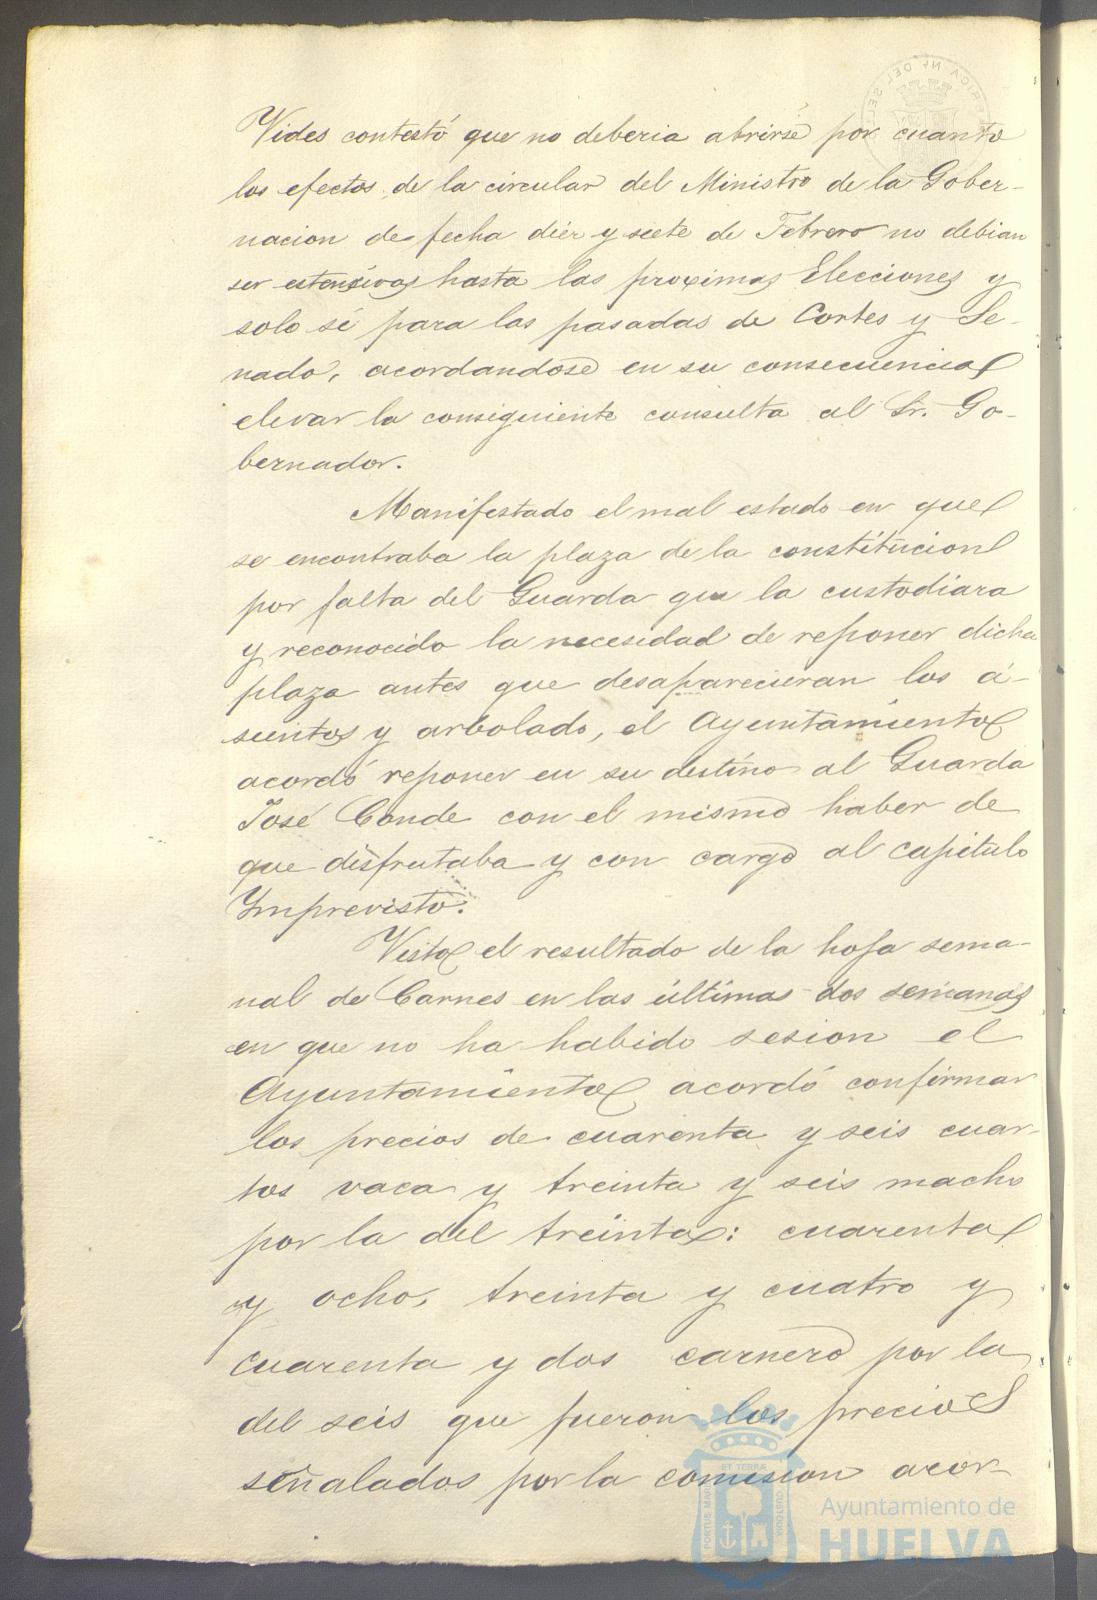 Vides contestó que no deberia abrirse por cuanto
los efectos de la circular del Ministro de la Gober-
nacion de fecha diez y siete de Febrero no debian
ser estensivos hasta las proximas Elecciones y
solo si para las pasadas de Cortes y Se-
nado, acordandose en su consecuencia
elevar la consiguiente consulta al Sr. Go-
bernador.
Manifestado el mal estado en que
se encontraba la plaza de la constitucion
por falta del Guarda que la custodiara
y reconocido la necesidad de reponer dicha
plaza antes que desaparecieran los a-
sientos y arbolado, el Ayuntamiento
acordó reponer en su destino al Guarda
José Conde con el mismo haber de
que disfrutaba y con cargo al capitulo
Imprevisto.
Visto el resultado de la hoja sema-
nal de Carnes en las últimas dos semanas
en que no ha habido sesion el
Ayuntamiento acordó confirmar
los precios de cuarenta y seis cuar-
tos vaca y treinta y seis macho
por la del treinta: cuarenta
y ocho, treinta y cuatro y
cuarenta y dos carnero por la
del seis que fueron los precios
señalados por la comision acor-
ET TERRAE
PORTUS MARIS
CUSTODIA
Ayuntamiento de
HUELVA